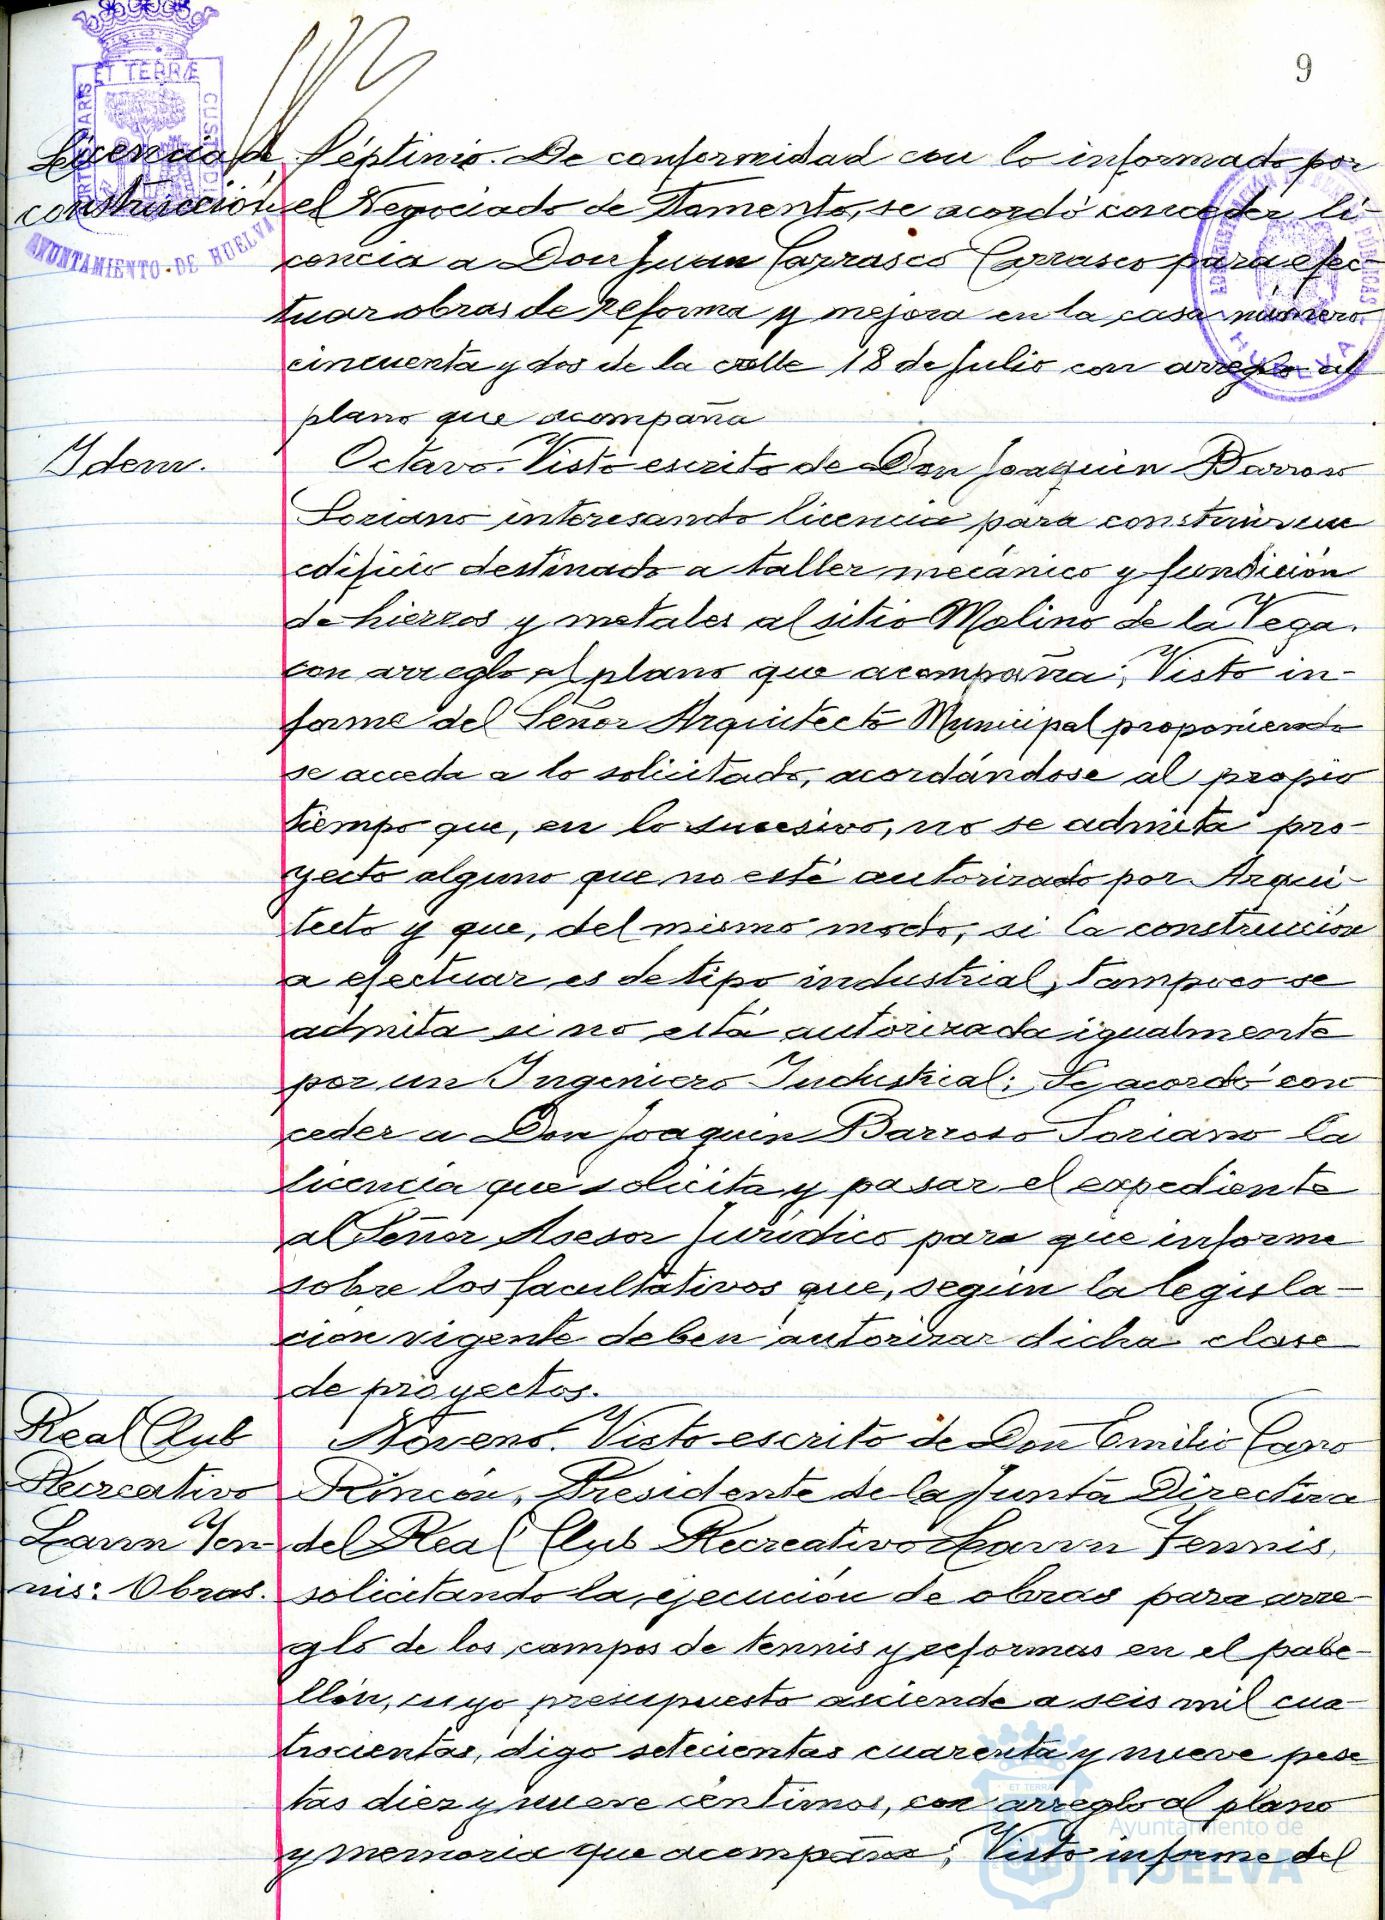 9
PORTUS MARIS ET TERRÆ CUSTODIA
AYUNTAMIENTO DE HUELVA
HUELVA
Licencia de
construcción
Séptimo. De conformidad con lo informado por
el Negociado de Fomento, se acordó conceder li-
cencia a Don Juan Carrasco Carrasco para efec-
tuar obras de reforma y mejora en la casa número
cincuenta y dos de la calle 18 de Julio con arreglo al
plano que acompaña
Idem.
Octavo. Visto escrito de Don Joaquin Barroso
Soriano interesando licencia para construir un
edificio destinado a taller mecánico y fundición
de hierros y metales al sitio Molino de la Vega.
con arreglo al plano que acompaña; Visto in-
forme del Señor Arquitecto Municipal proponiendo
se acceda a lo solicitado, acordándose al propio
tiempo que, en lo sucesivo, no se admita pro-
yecto alguno que no esté autorizado por Arqui-
tecto y que, del mismo modo, si la construcción
a efectuar es de tipo industrial, tampoco se
admita si no está autorizada igualmente
por un Ingeniero Industrial; Se acordó con
ceder a Don Joaquin Barroso Soriano la
licencia que solicita y pasar el expediente
al Señor Asesor Jurídico para que informe
sobre los facultativos que, según la legisla-
ción vigente deben autorizar dicha clase
de proyectos.
Real Club
Recreativo
Lawn Ten-
nis: Obras.
Noveno. Visto escrito de Don Emilio Cano
Rincón, Presidente de la Junta Directiva
del Real Club Recreativo Lawn Tennis,
solicitando la ejecución de obras para arre-
glo de los campos de tennis y reformas en el pabe-
llón, cuyo presupuesto asciende a seis mil cua-
trocientas, digo setecientas cuarenta y nueve pese
tas diez y nueve céntimos, con arreglo al plano
y memoria que acompaña; Visto informe del
Ayuntamiento de
HUELVA